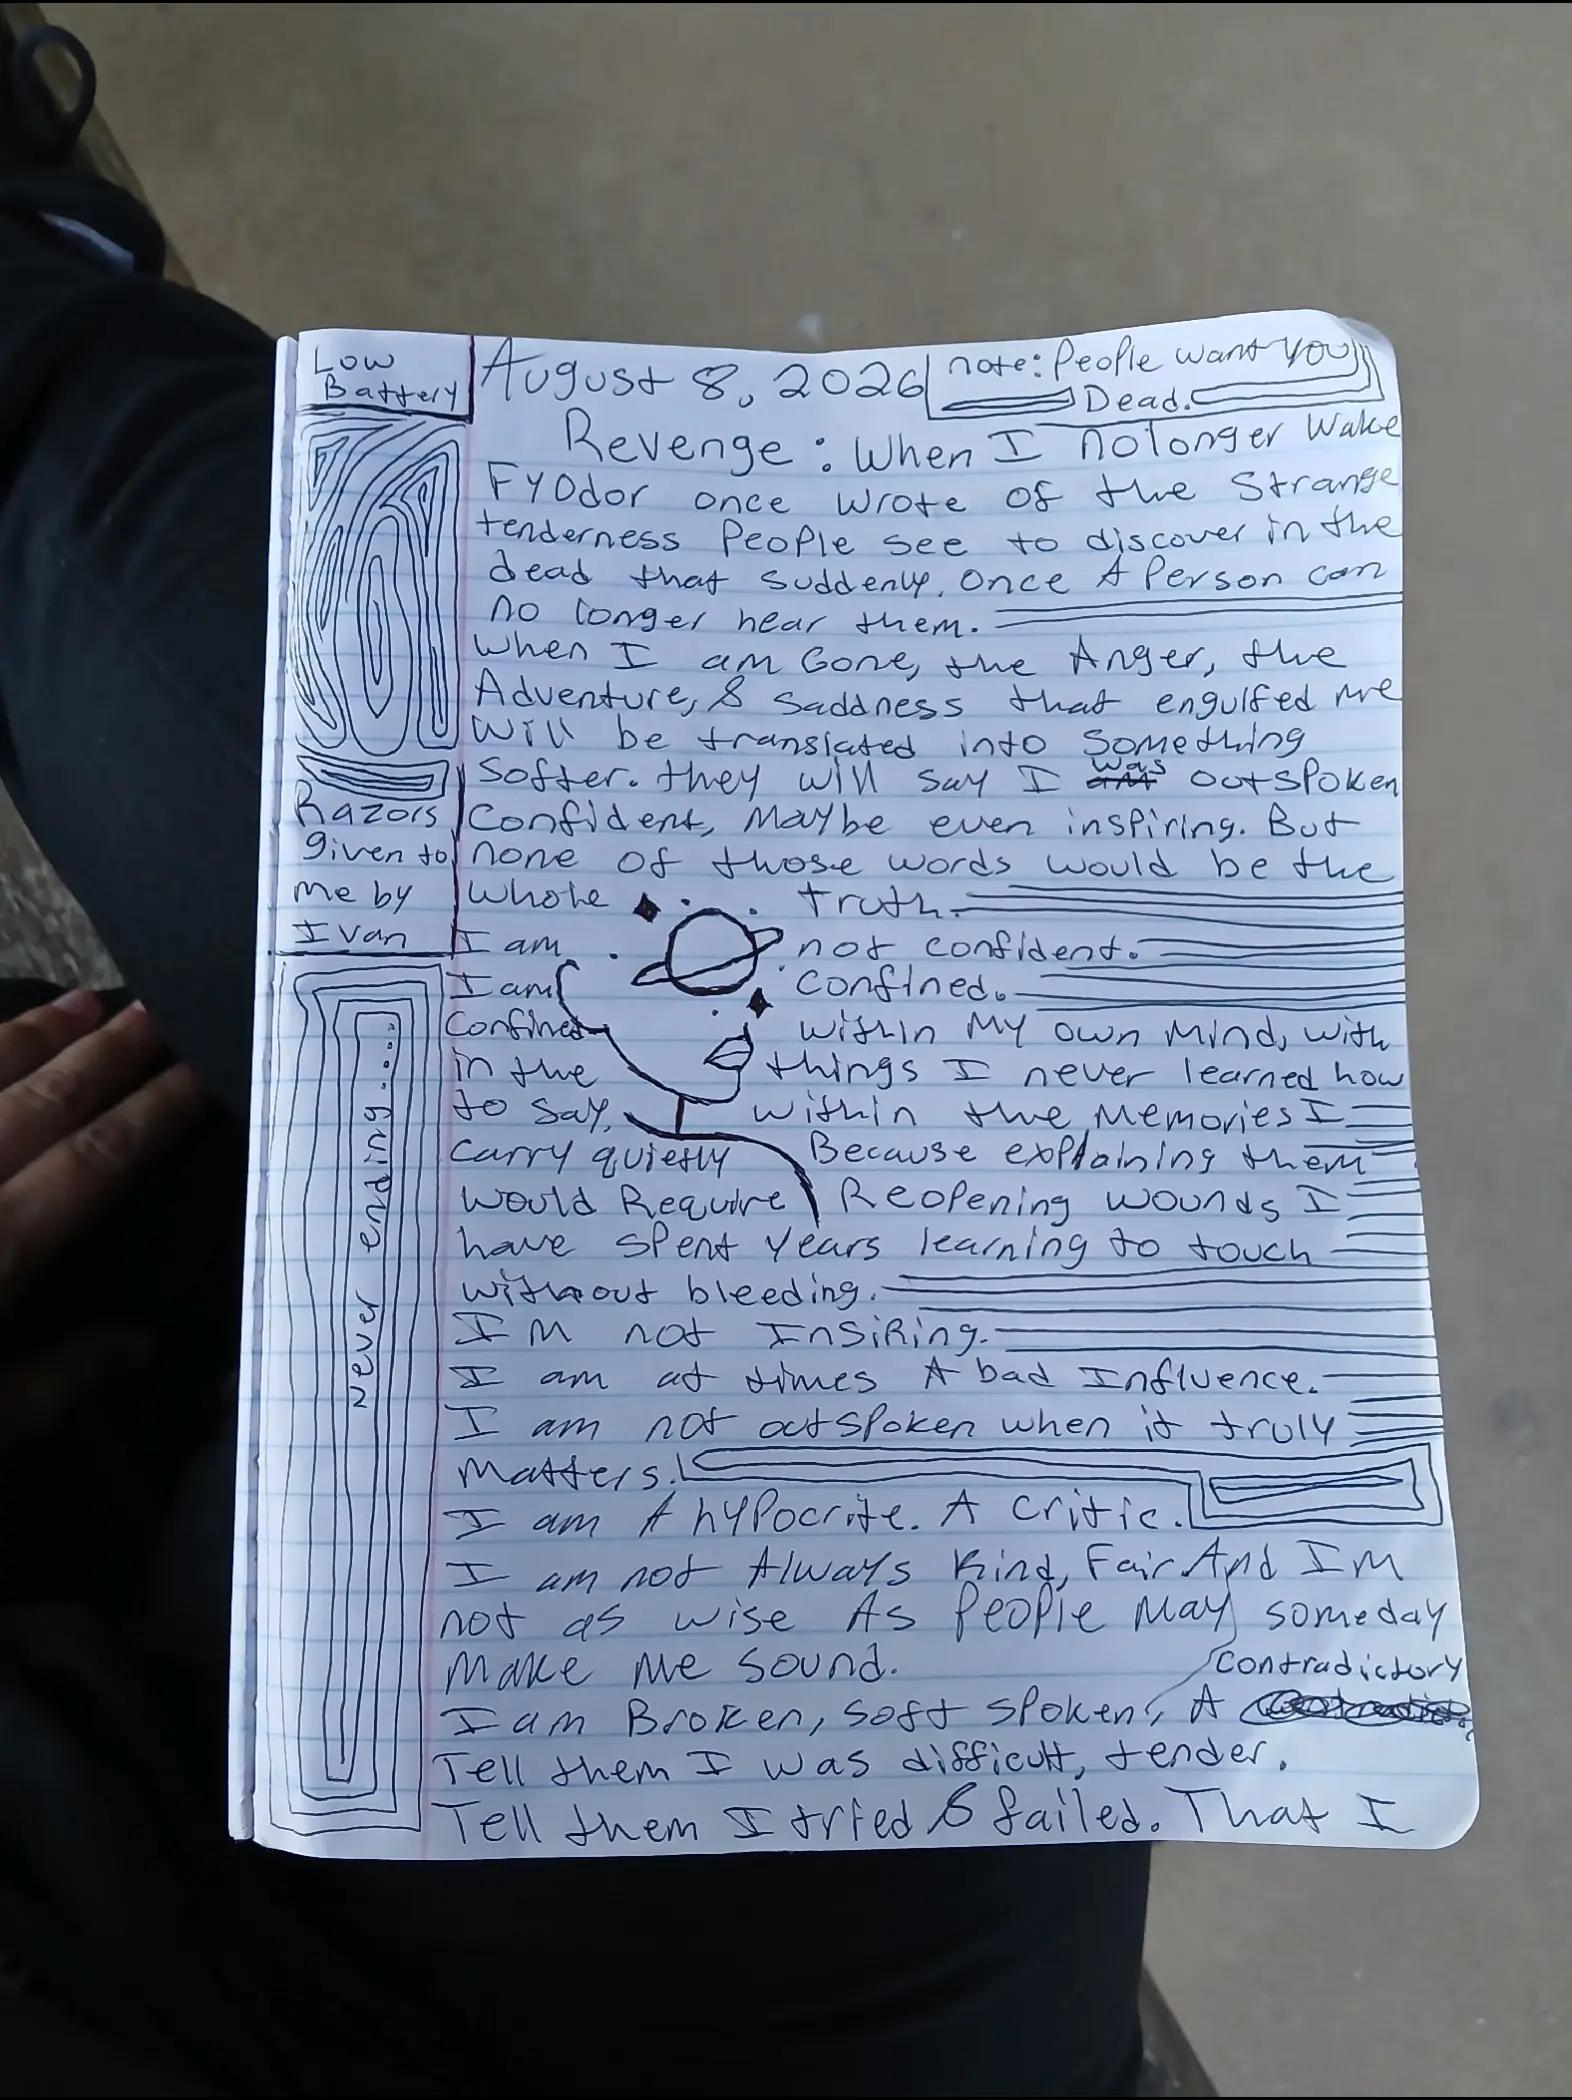 Low
Battery
August 8, 2026
note: People want you
Dead.
Revenge: When I no longer Wake
FYOdor once wrote of the Strange
tenderness People see to discover in the
dead that suddenly, once A Person can
no longer hear them.
when I am Gone, the Anger, the
Adventure, & saddness that engulfed me
Will be translated into something
Softer. they will say I was outspoken
Razors
given to
me by
Ivan
Confident, Maybe even inspiring. But
none of those words would be the
whole truth.
I am not confident.
I am confined.
Confined within My own Mind, with
in the things I never learned how
to say, within the Memories I
Carry quietly Because explaining them
would Require Reopening wounds I
have spent years learning to touch
without bleeding.
never ending....
IM not InsiRing.
I am at times A bad Influence.
I am not outspoken when it truly
Matters.
I am A hypocrite. A critic.
I am not Always Kind, Fair And IM
not as wise As People May someday
Make me sound.
contradictory
I am Broken, soft spoken, A
Tell them I was difficult, tender.
Tell them I tried & failed. That I